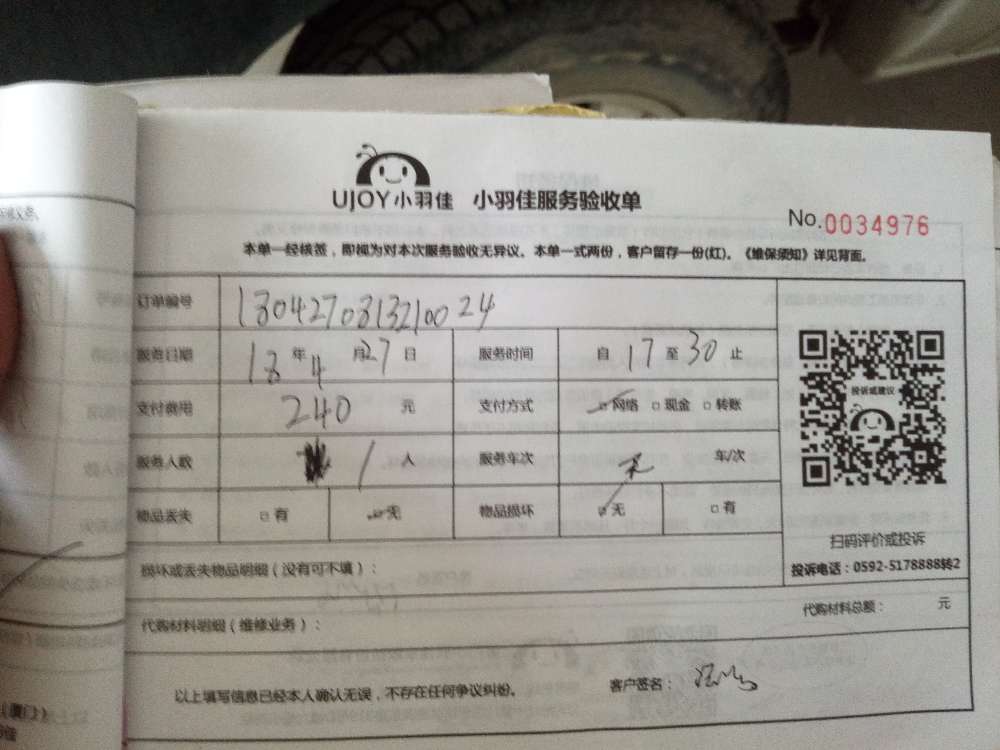 UJOY小羽佳 小羽佳服务验收单
No.0034976
本单一经核签，即视为对本次服务验收无异议。本单一式两份，客户留存一份(红)。《维保须知》详见背面。
订单编号 18042708132100 24
服务日期 18年4月27日 服务时间 自17至30止
支付费用 240元 支付方式 网络 现金 转账
服务人数 1人 服务车次 无 车/次
物品丢失 有 无 物品损坏 无 有
投诉或建议
扫码评价或投诉
投诉电话：0592-5178888转2
损坏或丢失物品明细（没有可不填）：
代购材料明细（维修业务）： 代购材料总额： 元
以上填写信息已经本人确认无误，不存在任何争议纠纷。 客户签名：
（厦门）